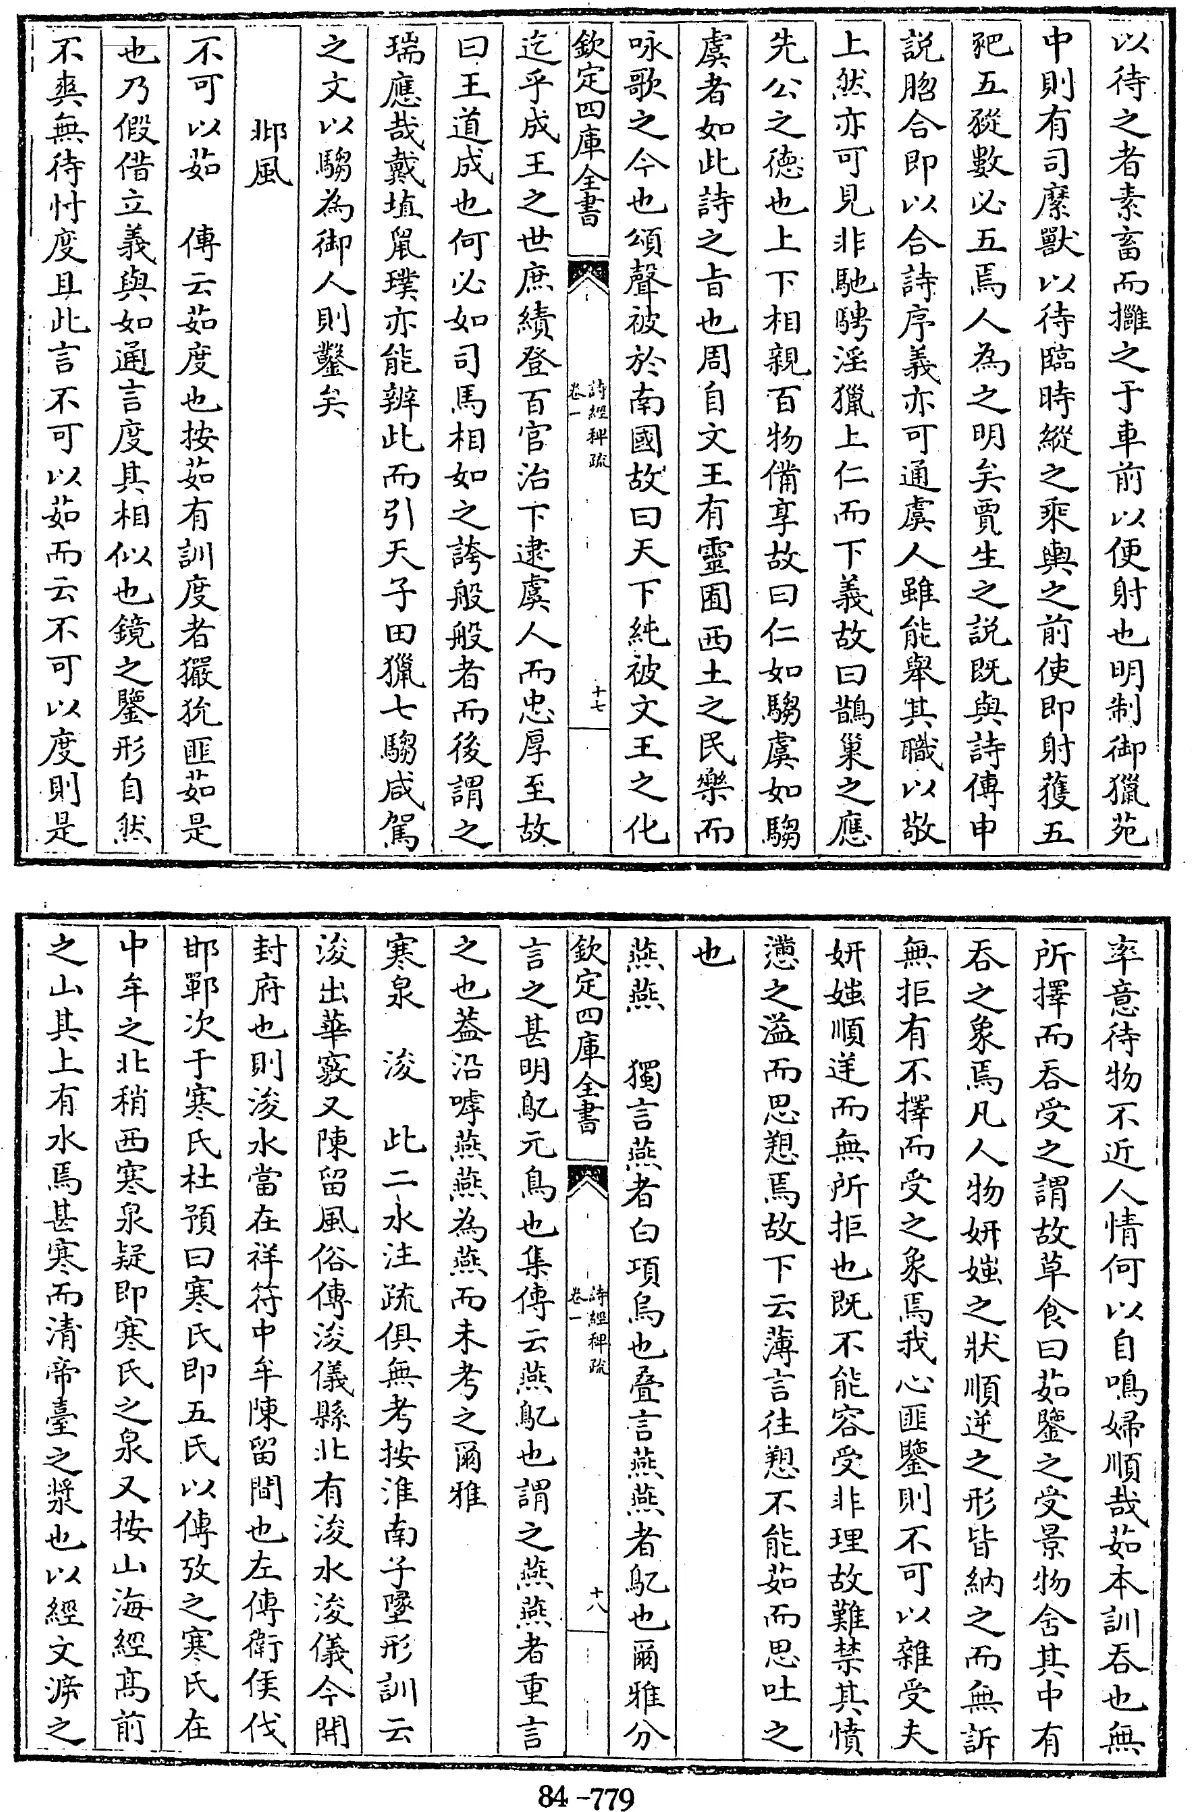 以待之者素畜而擁之于車前以便射也明制御獵苑
中則有司縻獸以待臨時縱之乘輿之前使即射獲五
豝五豵數必五焉人為之明矣賈生之説既與詩傳申
説脗合即以合詩序義亦可通虞人雖能舉其職以敬
上然亦可見非馳騁淫獵上仁而下義故曰鵲巢之應
先公之德也上下相親百物備享故曰仁如騶虞如騶
虞者如此詩之旨也周自文王有靈囿西土之民樂而
咏歌之今也頌聲被於南國故曰天下純被文王之化
欽定四庫全書
詩經稗疏
卷一
十七
迄乎成王之世庶績登百官治下逮虞人而忠厚至故
曰王道成也何必如司馬相如之誇般般者而後謂之
瑞應哉戴埴鼠璞亦能辨此而引天子田獵七騶咸駕
之文以騶為御人則鑿矣
邶風
不可以茹　傳云茹度也按茹有訓度者玁狁匪茹是
也乃假借立義與如通言度其相似也鏡之鑒形自然
不爽無待忖度且此言不可以茹而云不可以度則是
率意待物不近人情何以自鳴婦順哉茹本訓吞也無
所擇而吞受之謂故草食曰茹鑒之受景物舍其中有
吞之象焉凡人物妍媸之狀順逆之形皆納之而無訢
無拒有不擇而受之象焉我心匪鑒則不可以雜受夫
妍媸順逆而無所拒也既不能容受非理故難禁其憤
懣之溢而思愬焉故下云薄言往愬不能茹而思吐之
也
燕燕　獨言燕者白項烏也疊言燕燕者鳦也爾雅分
欽定四庫全書
詩經稗疏
卷一
十八
言之甚明鳦元鳥也集傳云燕鳦也謂之燕燕者重言
之也蓋沿嘑燕燕為燕而未考之爾雅
寒泉　浚　此二水注疏俱無考按淮南子墜形訓云
浚出華竅又陳留風俗傳浚儀縣北有浚水浚儀今開
封府也則浚水當在祥符中牟陳留間也左傳衛侯伐
邯鄲次于寒氏杜預曰寒氏即五氏以傳攷之寒氏在
中牟之北稍西寒泉疑即寒氏之泉又按山海經高前
之山其上有水焉甚寒而清帝臺之漿也以經文泝之
84-779